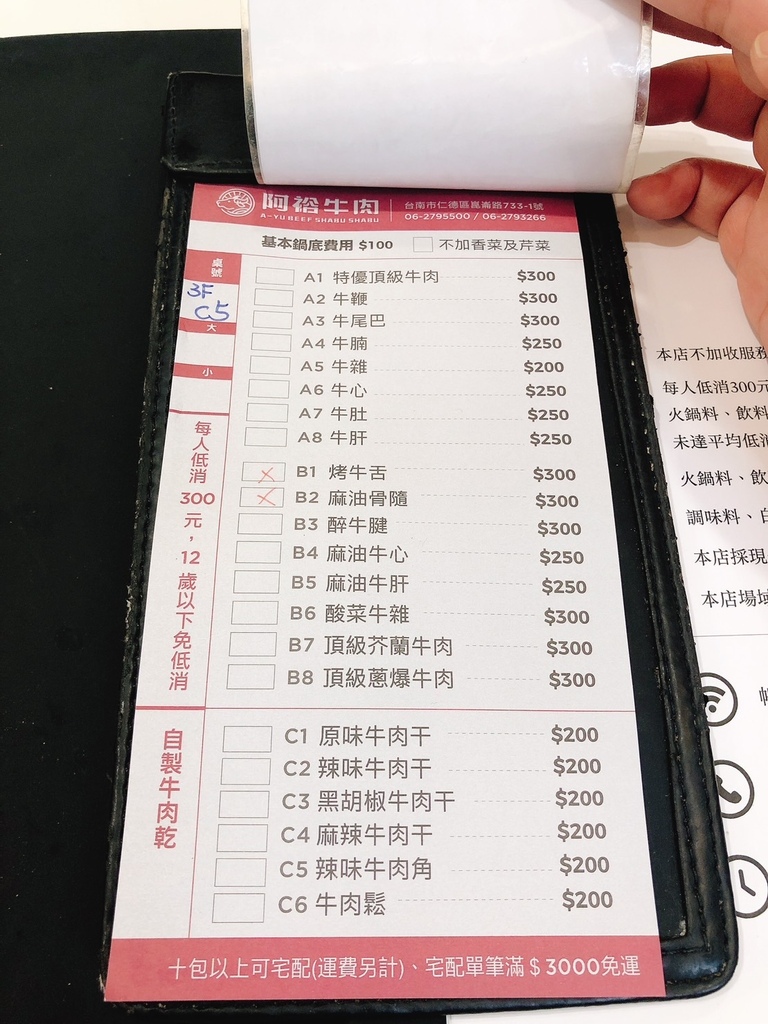 阿裕牛肉
A-YU BEEF SHABU SHABU
台南市仁德區崑崙路733-1號
06-2795500 / 06-2793266
基本鍋底費用 $100 不加香菜及芹菜
桌號
3F
C5
大
小
A1 特優頂級牛肉 $300
A2 牛鞭 $300
A3 牛尾巴 $300
A4 牛腩 $250
A5 牛雜 $200
A6 牛心 $250
A7 牛肚 $250
A8 牛肝 $250
每人低消300元，12歲以下免低消
B1 烤牛舌 $300
B2 麻油骨隨 $300
B3 醉牛腱 $300
B4 麻油牛心 $250
B5 麻油牛肝 $250
B6 酸菜牛雜 $300
B7 頂級芥蘭牛肉 $300
B8 頂級蔥爆牛肉 $300
自製牛肉乾
C1 原味牛肉干 $200
C2 辣味牛肉干 $200
C3 黑胡椒牛肉干 $200
C4 麻辣牛肉干 $200
C5 辣味牛肉角 $200
C6 牛肉鬆 $200
十包以上可宅配(運費另計)、宅配單筆滿$3000免運
本店不加收服務
每人低消300元
火鍋料、飲料
未達平均低消
火鍋料、飲
調味料、白
本店採現
本店場域